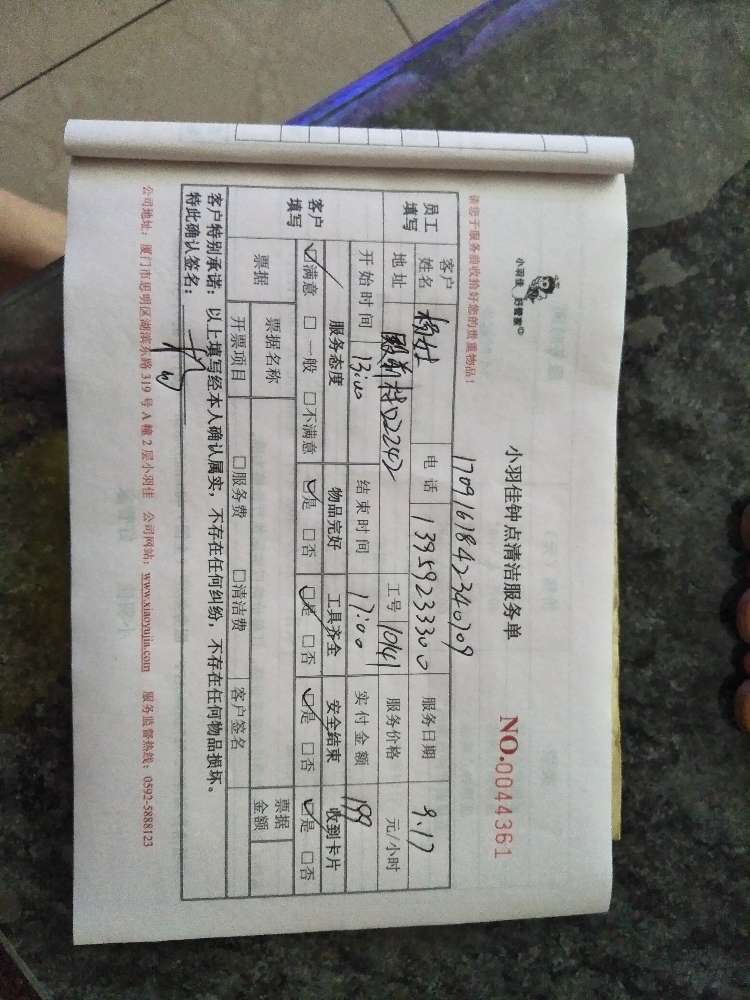 小羽佳 好管家
小羽佳钟点清洁服务单
NO.0044361
1709161842340209
请您于服务前收拾好您的贵重物品!
员工填写 客户姓名 电话 13959233300 服务日期 9.17
地址 2242 工号 10141 服务价格 元/小时
开始时间 13:00 结束时间 17:00 实付金额 199
客户填写 服务态度 物品完好 工具齐全 安全结束 收到卡片
☑满意 □一般 □不满意 ☑是 □否 ☑是 □否 ☑是 □否 ☑是 □否
票据 票据名称 票据金额
开票项目 □服务费 □清洁费 客户签名
客户特别承诺:以上填写经本人确认属实,不存在任何纠纷,不存在任何物品损坏。
特此确认签名:
公司地址:厦门市思明区湖滨东路319号A幢2层小羽佳 公司网站:www.xiaoyujia.com 服务监督热线:0592-5888123